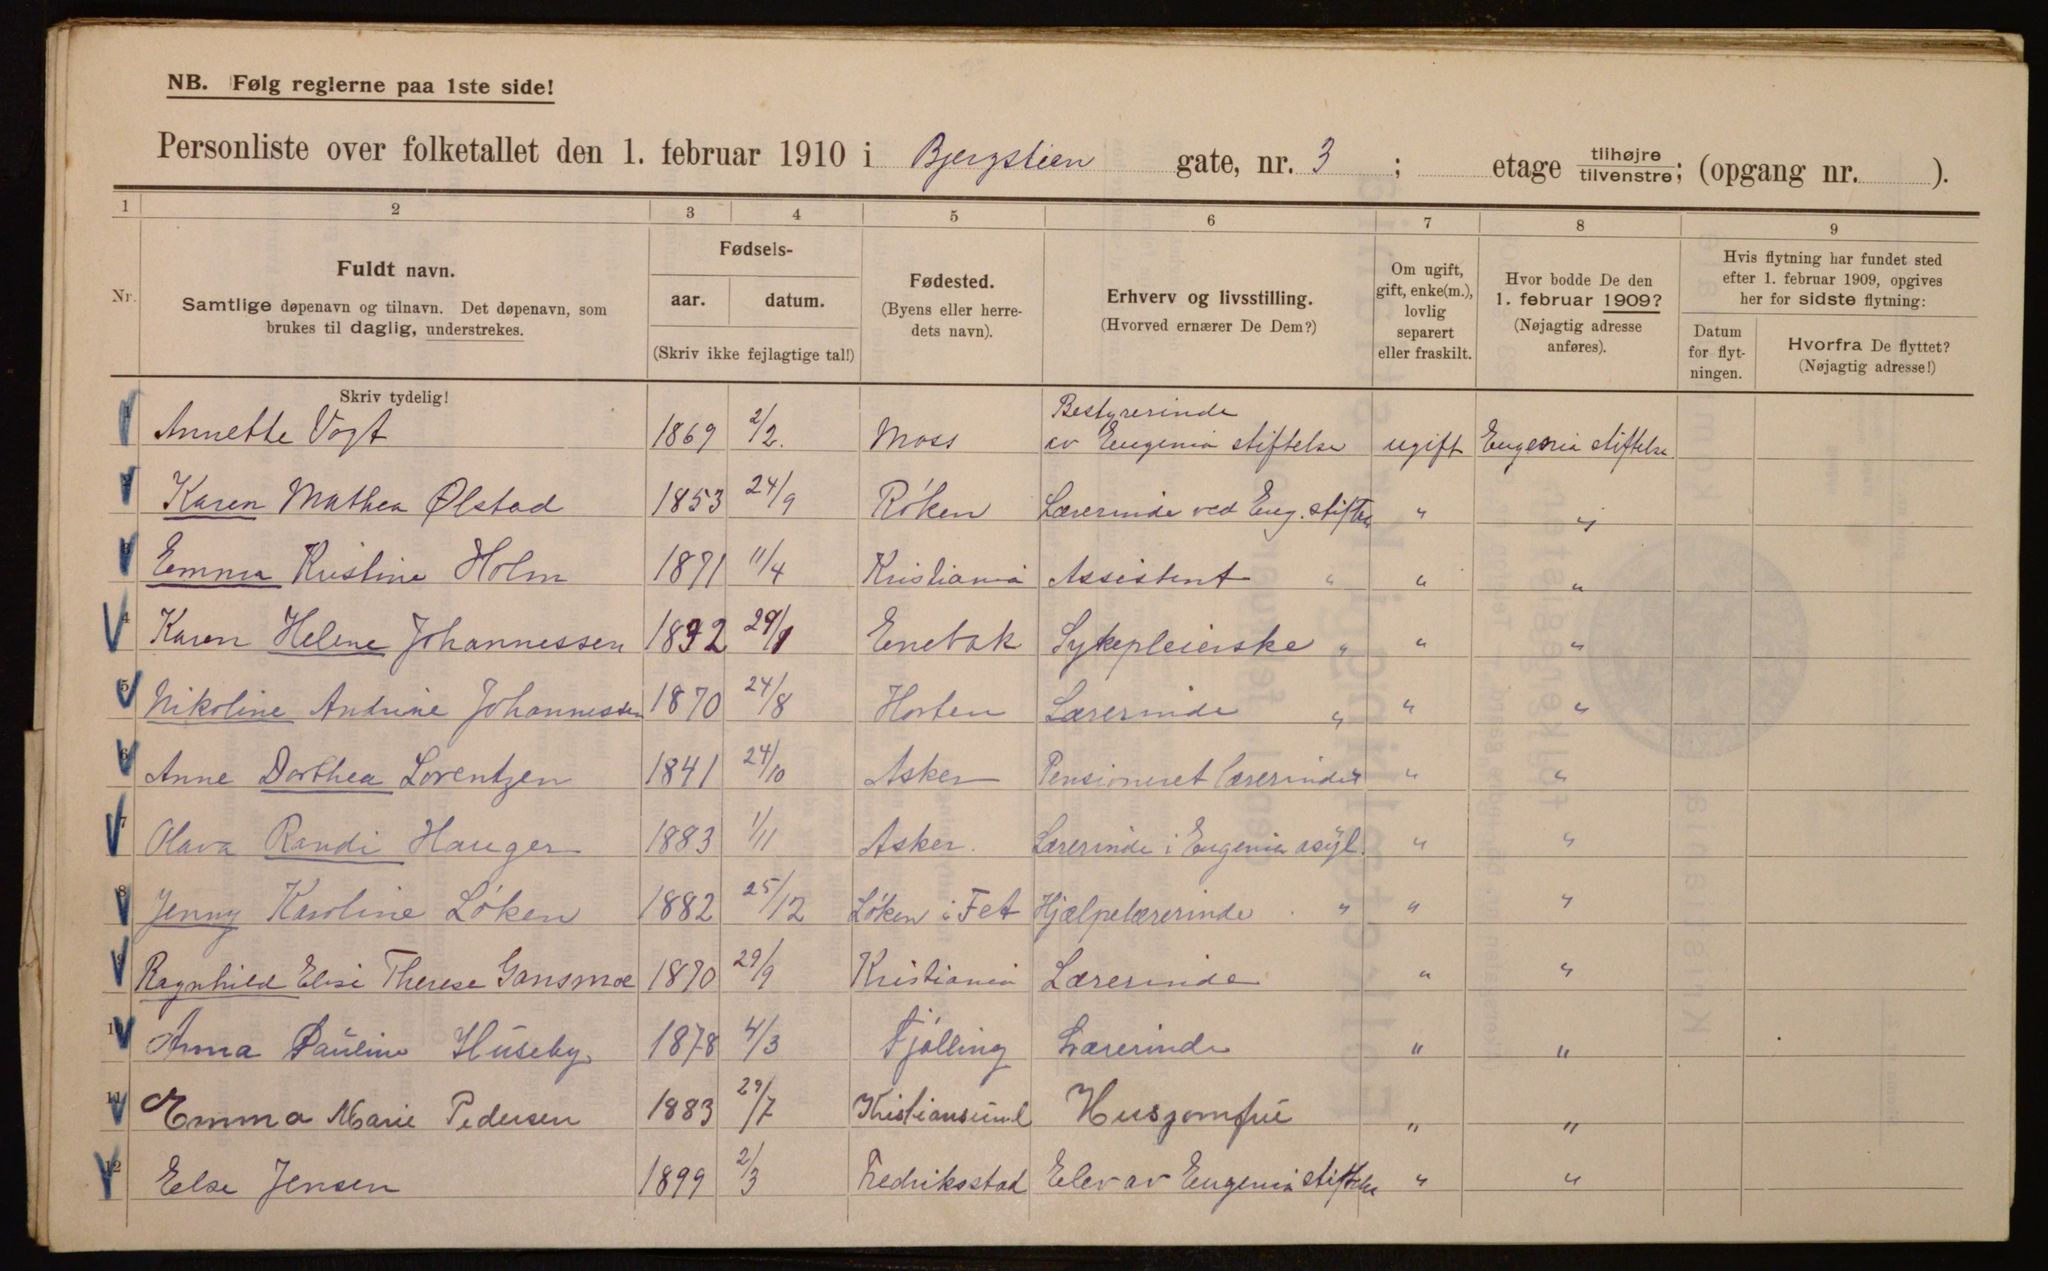 NB. Følg reglerne paa 1ste side!
Personliste over folketallet den 1. februar 1910 i Bjergstien gate, nr. 3 ; etage tilhøjre tilvenstre; (opgang nr. ).
1 2 3 4 5 6 7 8 9
Nr.
Fuldt navn.
Samtlige døpenavn og tilnavn. Det døpenavn, som
brukes til daglig, understrekes.
Fødsels-
aar. datum.
(Skriv ikke fejlagtige tal!)
Fødested.
(Byens eller herre-
dets navn).
Erhverv og livsstilling.
(Hvorved ernærer De Dem?)
Om ugift,
gift, enke(m.),
lovlig
separert
eller fraskilt.
Hvor bodde De den
1. februar 1909?
(Nøjagtig adresse
anføres).
Hvis flytning har fundet sted
efter 1. februar 1909, opgives
her for sidste flytning:
Datum
for flyt-
ningen.
Hvorfra De flyttet?
(Nøjagtig adresse!)
Skriv tydelig!
1 Annette Vogt 1869 2/2. Moss Bestyrerinde
av Eugenia stiftelse ugift Eugenia stiftelse
2 Karen Mathea Ølstad 1853 24/9 Røken Lærerinde ved Eug. stiftelse " "
3 Emma Kristine Holm 1871 11/4 Kristiania Assistent " " "
4 Karen Helene Johannessen 29/1 Enebak Sykepleierske " " "
5 Nikoline Andrine Johannessen 1870 24/8 Horten Lærerinde " " "
6 Anne Dorthea Lorentzen 1841 24/10 Asker Pensioneret lærerinde " " "
7 Olava Randi Hauger 1883 1/11 Asker. Lærerinde i Eugenia asyl. " "
8 Jenny Karoline Løken 1882 25/12 Løken i Fet Hjælpelærerinde " " "
9 Ragnhild Elise Therese Gansmoe 1870 29/9 Kristiania Lærerinde " "
10 Anna Pauline Huseby 1878 4/3 Tjølling Lærerinde " "
11 Emma Marie Pedersen 1883 29/7 Kristiansund Husjomfru " "
12 Else Jensen 1899 2/3 Fredriksstad Elev av Eugenia stiftelse " "